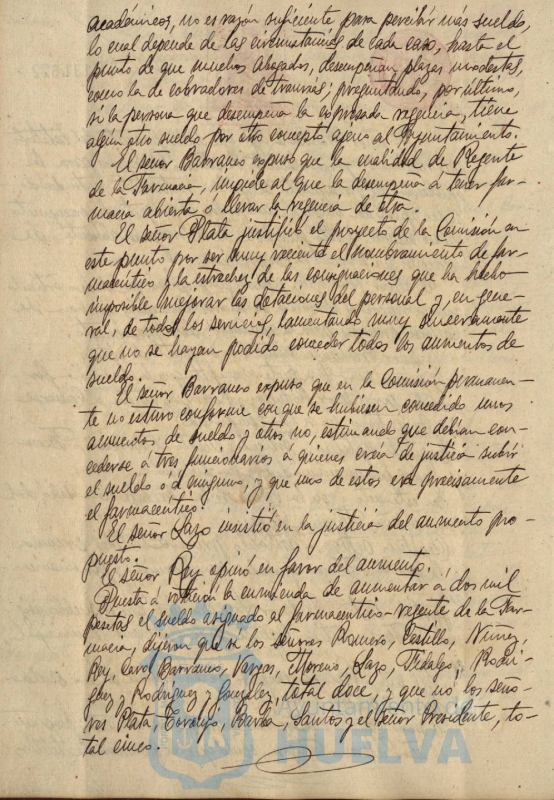 académicos, no es razón suficiente para percibir más sueldo,
lo cual depende de las circunstancias de cada caso, hasta el
punto de que muchos abogados, desempeñan plazas modestas,
como la de cobradores de tranvías; preguntando, por último,
si la persona que desempeña la expresada regencia, tiene
algún otro sueldo por otro concepto ajeno al Ayuntamiento.
El señor Barranco expuso que la cualidad de Regente
de la Farmacia, impide al que la desempeña á tener far-
macia abierta ó llevar la regencia de otra.
El señor Plata justificó el proyecto de la Comisión en
este punto por ser muy reciente el nombramiento de far-
macéutico y la estrechez de las consignaciones que ha hecho
imposible mejorar las dotaciones del personal y, en gene-
ral, de todos los servicios, lamentando muy sinceramente
que no se hayan podido conceder todos los aumentos de
sueldo.
El señor Barranco expuso que en la Comisión permanen-
te no estuvo conforme con que se hubiesen concedido unos
aumentos de sueldo y otros no, estimando que debían con-
cederse á tres funcionarios á quienes creía de justicia subir
el sueldo ó á ninguno, y que uno de estos era precisamente
el farmacéutico.
El señor Lazo insistió en la justicia del aumento pro-
puesto.
El señor Rey opinó en favor del aumento.
Puesta á votación la enmienda de aumentar á dos mil
pesetas el sueldo asignado al farmacéutico-regente de la Far-
macia, dijeron que sí los señores Romero, Castillo, Núñez,
Rey, Caro, Barranco, Vargas, Moreno, Lazo, Hidalgo, Rodrí-
guez y Rodríguez y González, total doce, y que no los seño-
res Plata, Toronjo, Barba, Santos y el señor Presidente, to-
tal cinco.
Ayuntamiento de
HUELVA